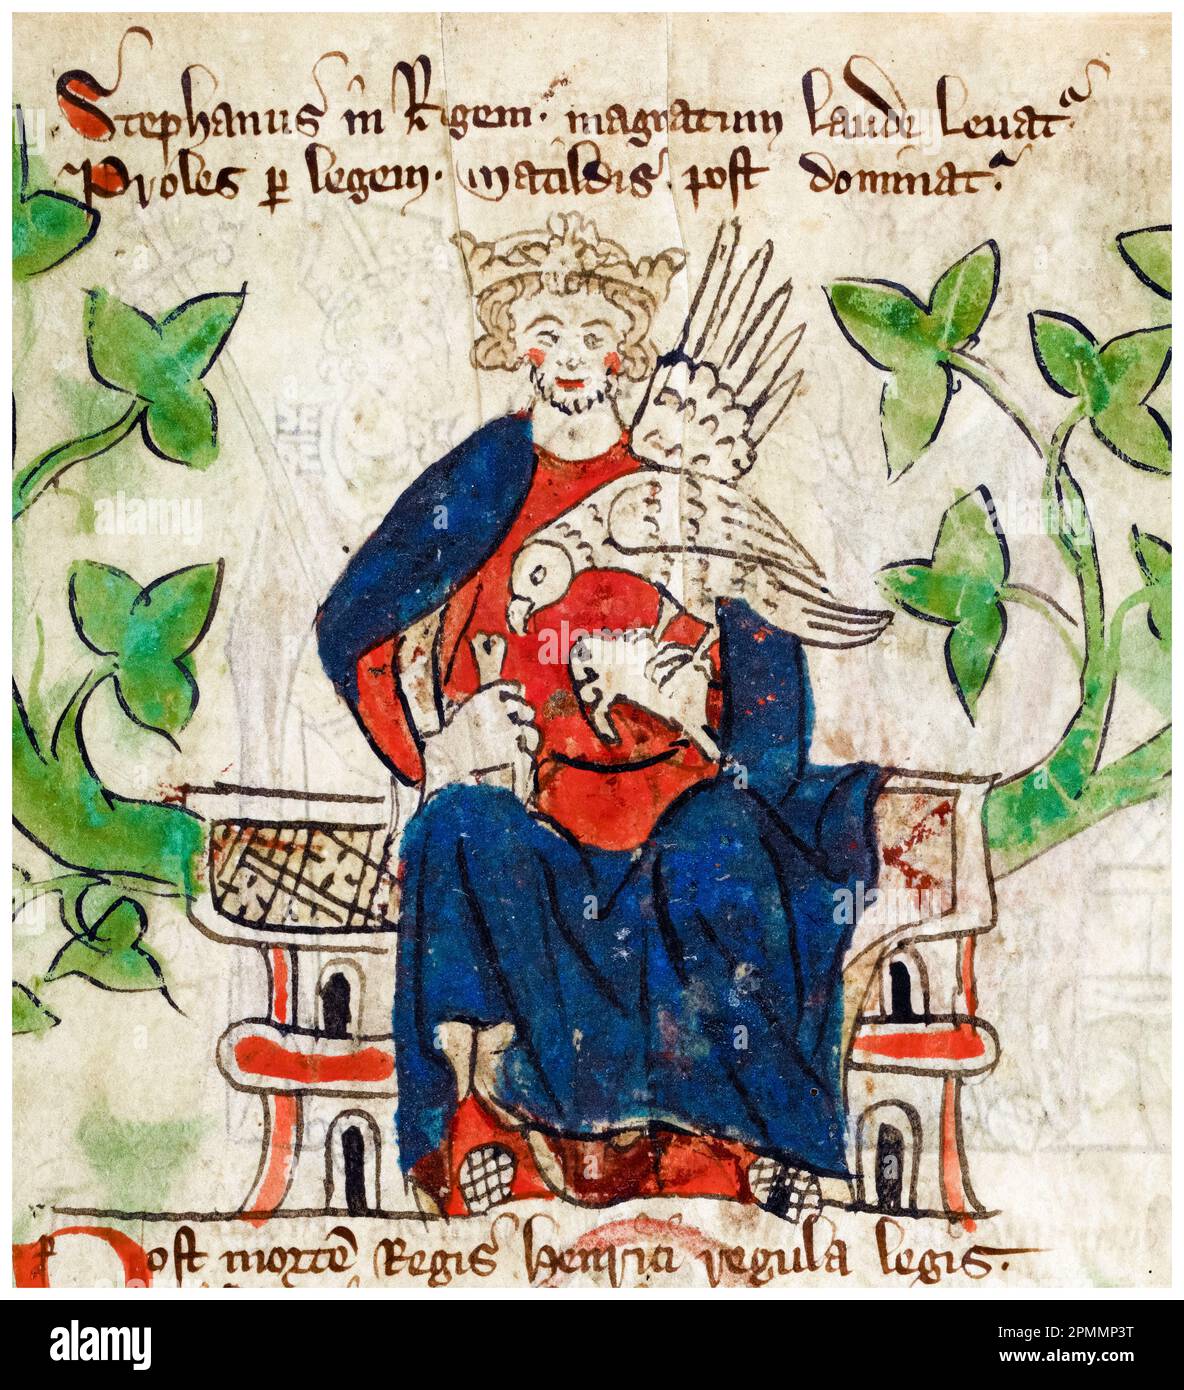 Stephanus in Regem · magnatum laude levat^r
Proles p legem · Matildis · post dominat^r
Post mortē Regis Henrici regula legis ·
alamy
Image ID: 2PMMP3T
www.alamy.com